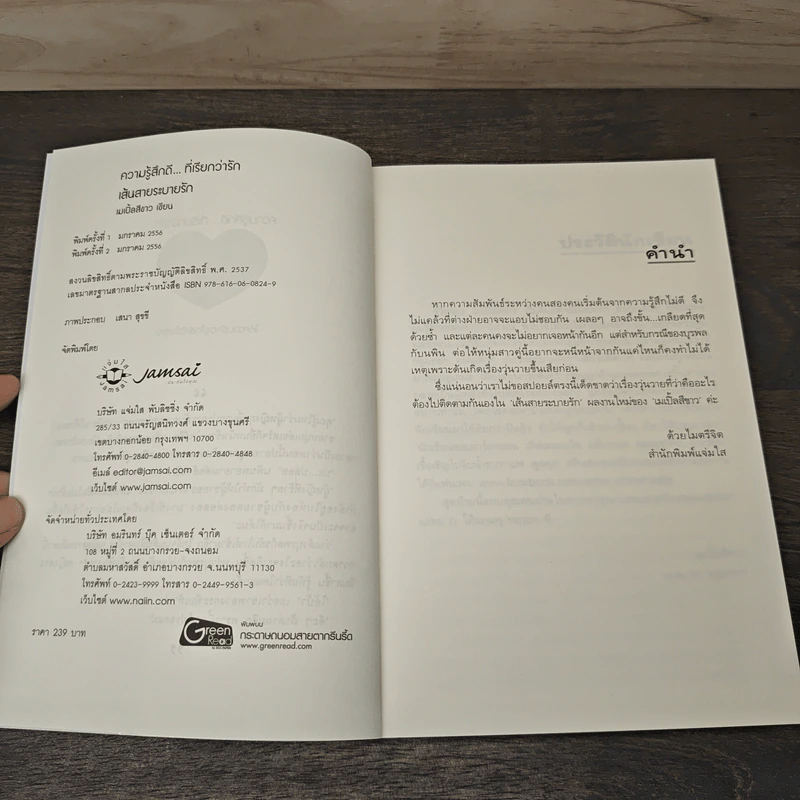 ความรู้สึกดี... ที่เรียกว่ารัก
เส้นสายระบายรัก
เมเปิ้ลสีขาว เขียน
พิมพ์ครั้งที่ 1 มกราคม 2556
พิมพ์ครั้งที่ 2 มกราคม 2556
สงวนลิขสิทธิ์ตามพระราชบัญญัติลิขสิทธิ์ พ.ศ. 2537
เลขมาตรฐานสากลประจำหนังสือ ISBN 978-616-06-0824-9
ภาพประกอบ เสนา สุขขี
จัดพิมพ์โดย
แจ่มใส
jamsai
jamsai
บริษัท แจ่มใส พับลิชชิ่ง จำกัด
285/33 ถนนจรัญสนิทวงศ์ แขวงบางขุนศรี
เขตบางกอกน้อย กรุงเทพฯ 10700
โทรศัพท์ 0-2840-4800 โทรสาร 0-2840-4848
อีเมล์ editor@jamsai.com
เว็บไซต์ www.jamsai.com
จัดจำหน่ายทั่วประเทศโดย
บริษัท อมรินทร์ บุ๊ค เซ็นเตอร์ จำกัด
108 หมู่ที่ 2 ถนนบางกรวย-จงถนอม
ตำบลมหาสวัสดิ์ อำเภอบางกรวย จ.นนทบุรี 11130
โทรศัพท์ 0-2423-9999 โทรสาร 0-2449-9561-3
เว็บไซต์ www.naiin.com
ราคา 239 บาท
Green Read
พิมพ์บน
กระดาษถนอมสายตากรีนรี้ด
www.greenread.com
คำนำ
หากความสัมพันธ์ระหว่างคนสองคนเริ่มต้นจากความรู้สึกไม่ดี จึง
ไม่แคล้วที่ต่างฝ่ายอาจจะแอบไม่ชอบกัน เผลอๆ อาจถึงขั้น...เกลียดที่สุด
ด้วยซ้ำ และแต่ละคนคงจะไม่อยากเจอหน้ากันอีก แต่สำหรับกรณีของบุรพล
กับนพิน ต่อให้หนุ่มสาวคู่นี้อยากจะหนีหน้าจากกันแค่ไหนก็คงทำไม่ได้
เหตุเพราะดันเกิดเรื่องวุ่นวายขึ้นเสียก่อน
ซึ่งแน่นอนว่าเราไม่ขอสปอยล์ตรงนี้เด็ดขาดว่าเรื่องวุ่นวายที่ว่าคืออะไร
ต้องไปติดตามกันเองใน 'เส้นสายระบายรัก' ผลงานใหม่ของ 'เมเปิ้ลสีขาว' ค่ะ
ด้วยไมตรีจิต
สำนักพิมพ์แจ่มใส